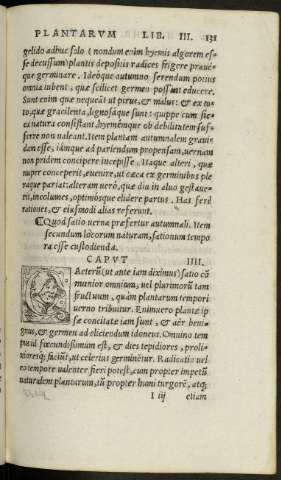 PLANTARVM LIB. III. 131
gelido adhuc solo (nondum enim hyemis algorem es=
se decussum) plantis depositis radices frigere præue=
que germinare. Ideóque autumno serendum potius
omnia iubent, quæ scilicet germen possunt educere.
Sunt enim quæ nequeāt ut pirus, & malus: & ex to=
to, quæ gracilenta, lignosáque sunt: quippe cum sic=
ca natura consistant, hyemémque ob debilitatem suf=
ferre non ualeant. Item plantam autumnalem graui=
dam esse, támque ad pariendum propensam, uernam
non pridem concipere incepisse. Itaque alteri, quæ
nuper conceperit, euenire, ut cæca ex germinibus ple
raque pariat: alteram uerò, quæ diu in aluo gestaue=
rit, incolumes, optimósque elidere partus. Has serè
rationes, & eiusmodi alias referunt.
Quòd satio uerna præfertur autumnali. Item
secundum locorum naturam, sationum tempo
ra esse custodienda.
CAPVT IIII.
CÆterū (ut ante iam diximus) satio cō
munior omnium, uel plurimorū tam
fructuum, quàm plantarum tempori
uerno tribuitur. Enimuero plantæ ip
sæ concitatæ iam sunt, & aër beni=
gnus, & germen ad eliciendum idoneus. Omnino tem
pus id fœcundissimum est, & dies tepidiores, proli=
xioreq; faciūt, ut celerius germinetur. Radicatio uel
eo tempore ualenter fieri potest, cum propter impetū
naturalem plantarum, tū propter humi turgorē, atq;
I iij etiam